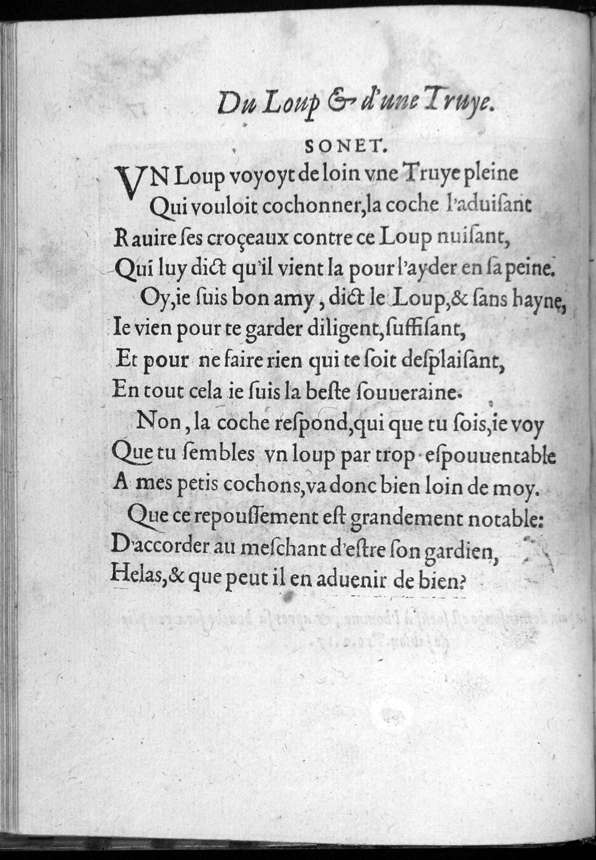 Du Loup & d'une Truye.
SONET.
VN Loup voyoyt de loin vne Truye pleine
Qui vouloit cochonner,la coche l'aduiſant
Rauire ſes croçeaux contre ce Loup nuiſant,
Qui luy dict qu'il vient la pour l'ayder en ſa peine.
Oy,ie ſuis bon amy , dict le Loup,& ſans hayne,
Ie vien pour te garder diligent,ſuffiſant,
Et pour ne faire rien qui te ſoit deſplaiſant,
En tout cela ie ſuis la beſte ſouueraine.
Non , la coche reſpond,qui que tu ſois,ie voy
Que tu ſembles vn loup par trop eſpouuentable
A mes petis cochons,va donc bien loin de moy.
Que ce repouſſement eſt grandement notable:
D'accorder au meſchant d'eſtre ſon gardien,
Helas,& que peut il en aduenir de bien?